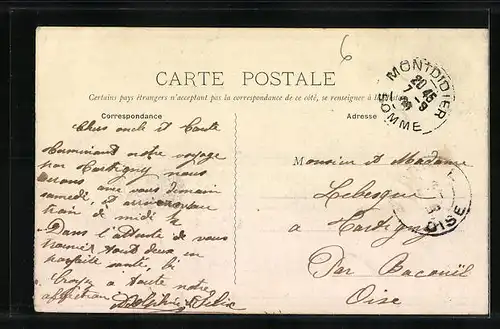 6
CARTE POSTALE
Certains pays étrangers n'acceptant pas la correspondance de ce côté, se renseigner à la
Correspondance
Adresse
MONTDIDIER
SOMME
20 45
7 - 9
OISE
Chers oncle et Tante
Terminant notre voyage
par Cartigny nous
serons avec vous demain
samedi, et
train de midi ½
Dans l'attente de vous
trouver tout deux en
parfaite santé,
Croyez à toute notre
affection Delphine & Félix
Monsieur et Madame
Lebesgue
a Cartigny
Par Bacouël
Oise